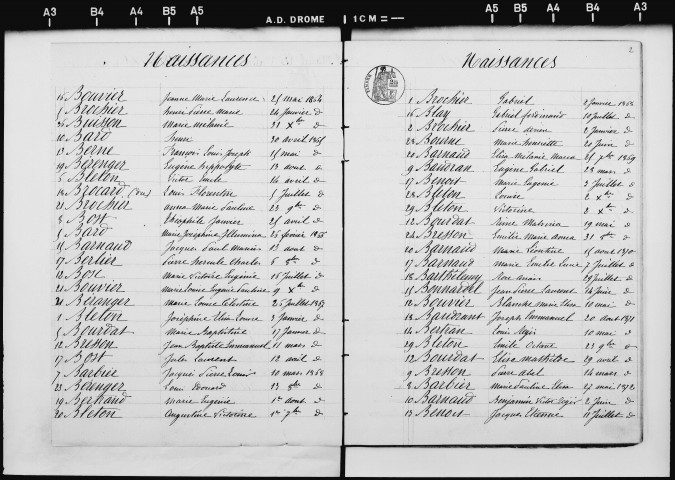 A3 B4 A4 B5 A5 A.D. DROME 1 CM = A5 B5 A4 B4 A3
Naissances
15 Bouvier Jeanne Marie Laurence 25 mai 1854
5 Brochier Henri Pierre Marie 24 janvier d
Buisson Marie Mélanie 21 Xbre d
10 Bard 20 avril 1855
13 Berne François Louis Joseph 15 mai d
19 Berenger Eugène hyppolyte 13 aout d
5 Bleton Victor Emile 14 avril d
14 Brocard Louis Florentin 5 juillet d
21 Brochier Anna Marie Pauline 23 9bre d
8 Bost Théophile Janvier 25 avril d
5 Bard Marie Josephine Philomène 25 fevrier 1856
15 Barnaud Jacques Paul Marius 13 aout d
17 Bertier Pierre Hercule Charles 5 8bre d
12 Bose Marie Victoire Eugénie 16 juillet d
21 Bouvier Marie Louise Eugénie Pauline 9 Xbre d
21 Béranger Marie Louise Célestine 25 juillet 1857
1 Bleton Joséphine Elisa Louise 3 janvier d
5 Bourdat Marie Baptistine 17 janvier d
12 Bresson Jean Baptiste Emmanuel 11 mars d
17 Bost Jules Laurent 12 avril d
7 Barbier Jacques Pierre Louis 10 mars 1858
23 Beranger Louis Edouard 13 8bre d
19 Bertrand Marie Eugénie 1er aout d
20 Bleton Augustine Victoire 1er 7bre d
2
Naissances
1 Brochier Gabriel 2 janvier 1868
16 Blay Gabriel Ferdinand 10 juillet d
2 Brochier Pierre 2 janvier d
Bourne Marie Henriette 20 juin d
20 Barnaud Elisa Mélanie Maria 25 7bre 1869
9 Baudran Eugène Gabriel 23 mars d
17 Benoit Marie Eugenie 3 juillet d
28 Bleton Louise 2 Xbre d
29 Bleton Victorine 2 Xbre d
12 Bourdat 19 mai d
24 Bresson Emilie Marie Anna 31 8bre d
20 Barnaud Marie Léontine 15 aout 1870
17 Barnaud Marie 7 juillet d
18 Barthélemy Rose Anais 29 juillet d
15 Bonnardel Jean Pierre 14 juin d
12 Bouvier Blanche Marie Elisa 10 mai d
13 Joseph Emmanuel 20 aout 1871
14 Bertrand Louis 10 mai d
29 Bleton Emile 23 9bre d
12 Bourdat Elisa Mathilde 29 avril d
9 Bresson Pierre Abel 14 mars d
8 Barbier Marie Pauline Elisa 27 mai 1872
10 Barnaud Benjamin Victor 2 juin d
13 Benoit Jacques Etienne 11 juillet d